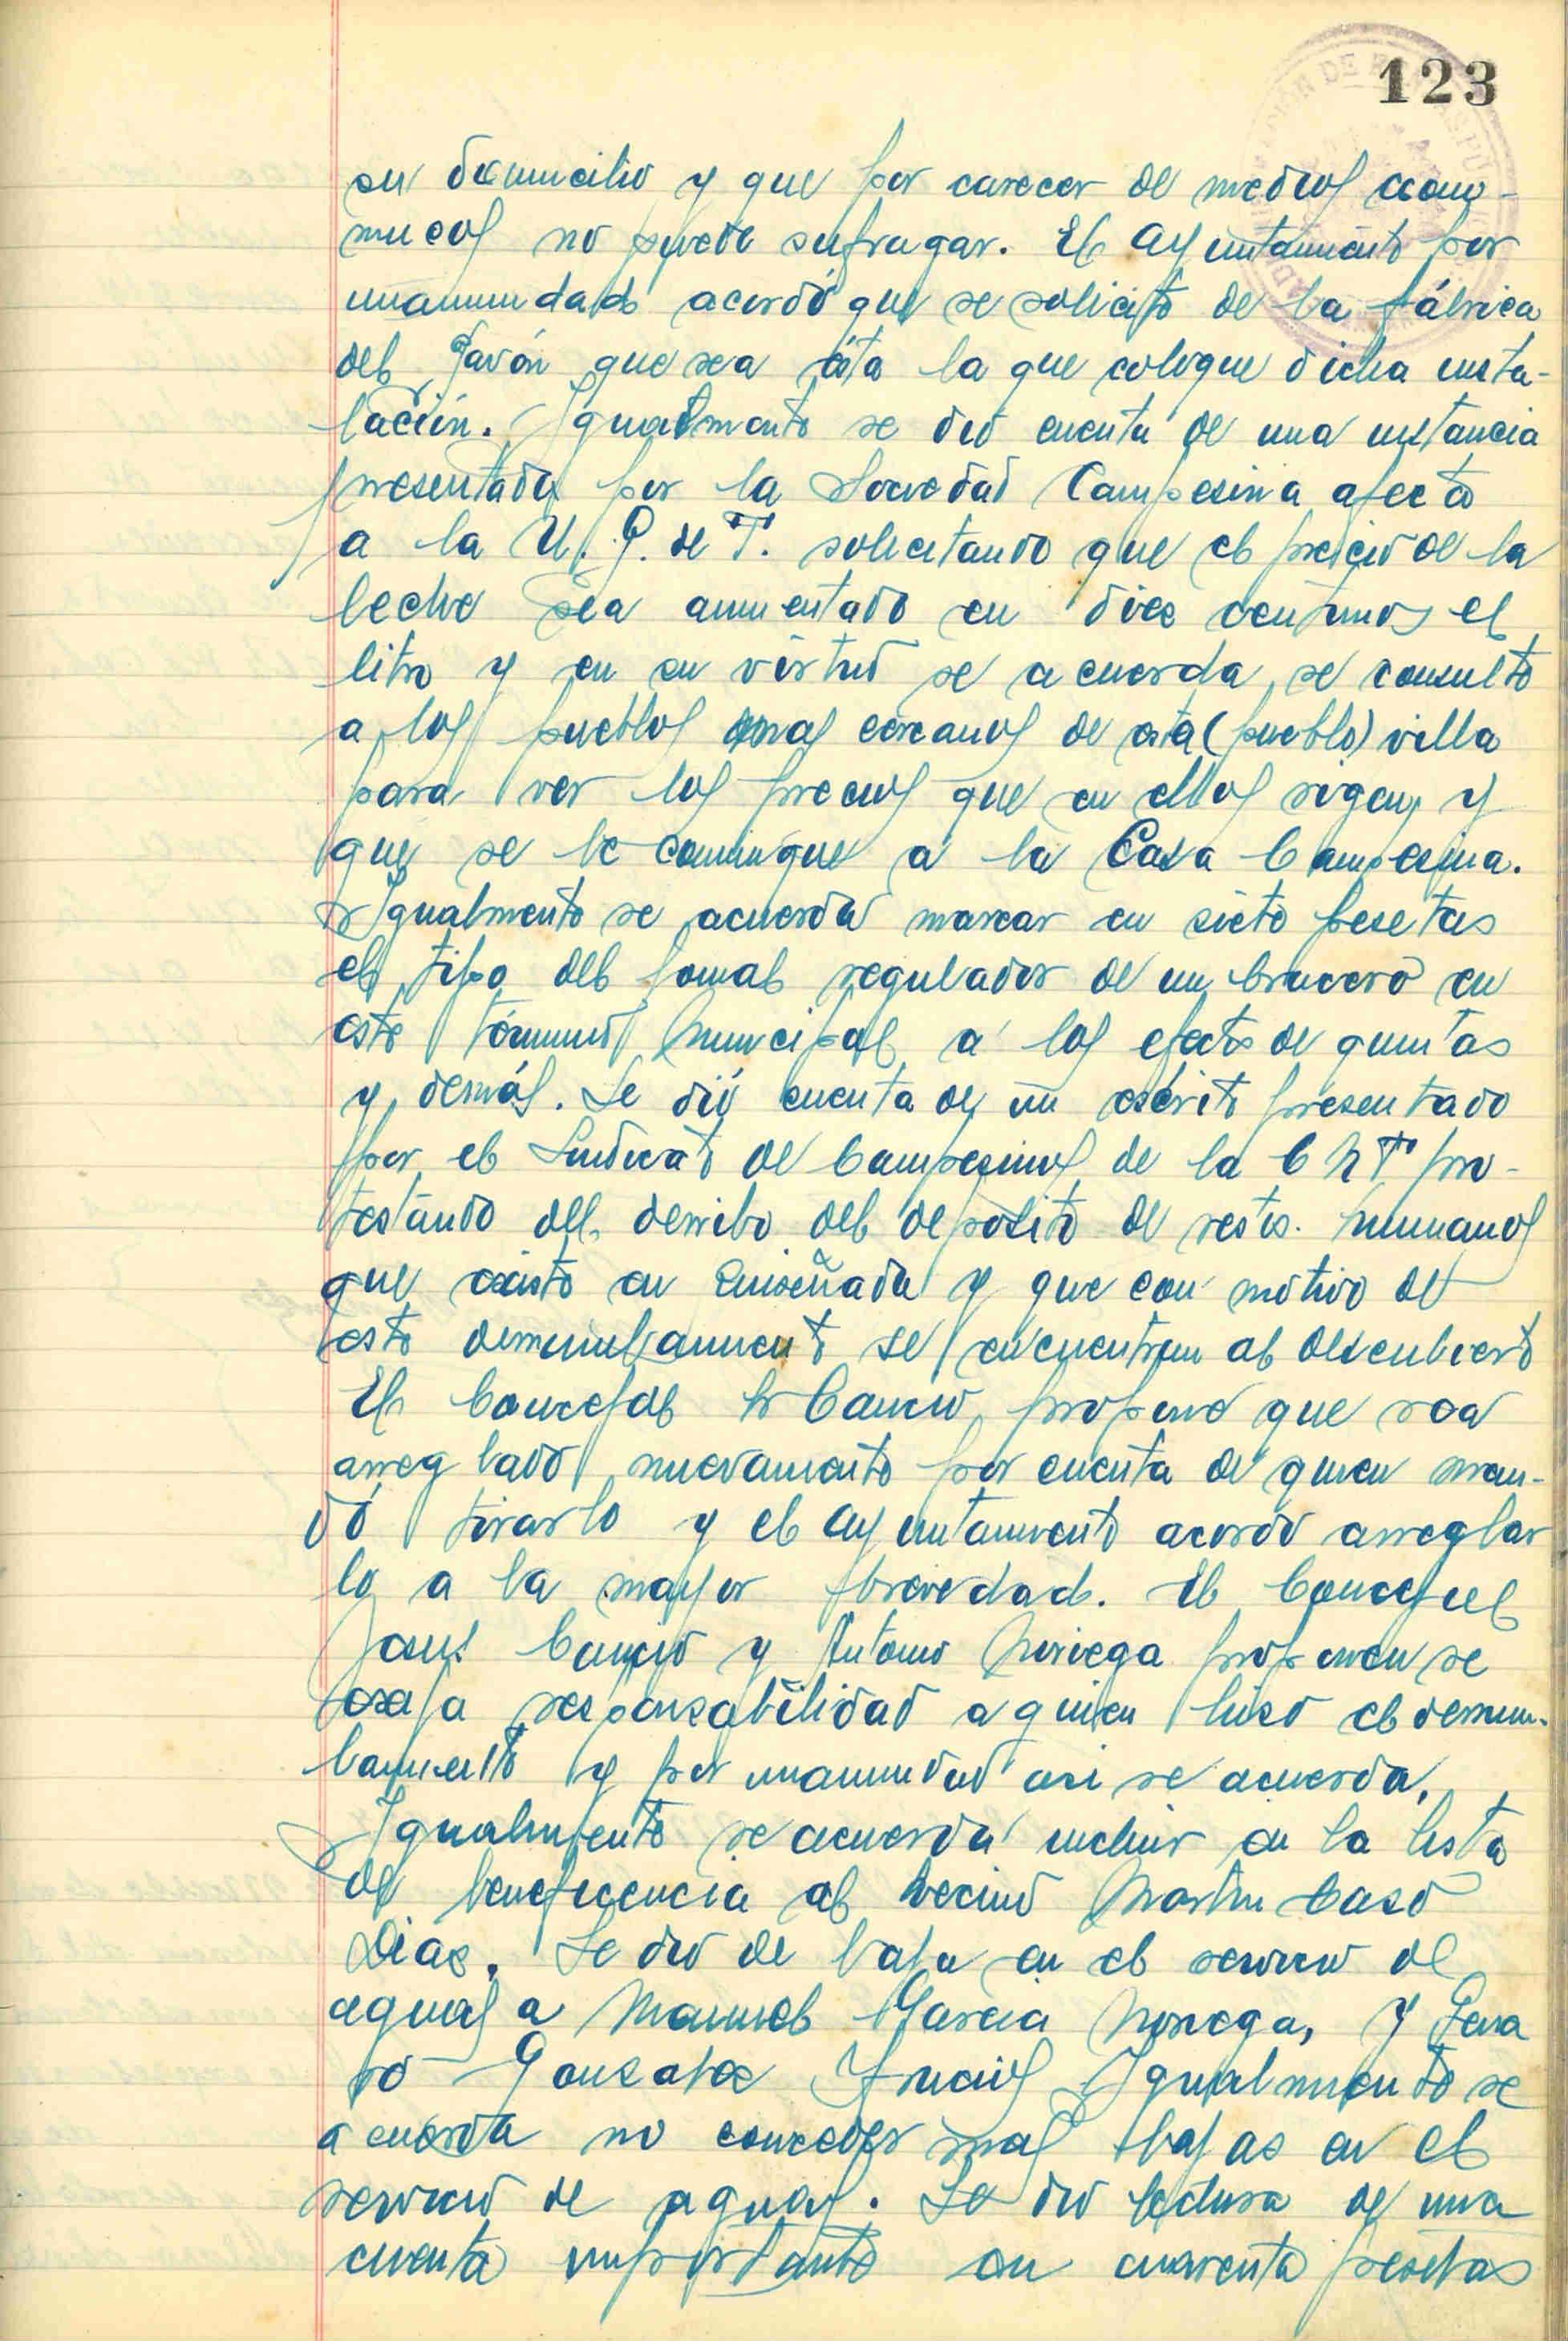 123
su domicilio y que por carecer de medios econo-
micos no puede sufragar. El Ayuntamiento por
unanimidad acordó que se solicite de la fábrica
del Gavón que sea ésta la que coloque dicha insta-
lación. Igualmente se dió cuenta de una instancia
presentada por la Sociedad Campesina afecta
a la U. G. de T. solicitando que el precio de la
leche sea aumentado en diez centimos el
litro y en su virtud se acuerda se consulte
a los pueblos mas cercanos de esta (pueblo) villa
para ver los precios que en ellos rigen, y
que se le comunique a la Casa Campesina.
Igualmente se acuerda marcar en siete pesetas
el tipo del jornal regulador de un bracero en
este término Municipal a los efectos de quintas
y demás. Se dió cuenta de un escrito presentado
por el Sindicato de Campesinos de la C N T pro-
testando del derribo del depósito de restos humanos
que existe en Quiseñada y que con motivo de
este derrumbamiento se encuentran al descubierto
El Concejal Sr Cancio, propone que sea
arreglado nuevamente por cuenta de quien man-
dó tirarlo y el Ayuntamiento acordó arreglar
lo a la mayor brevedad. El Concejal
Jesus Cancio y Antonio Noriega proponen se
exija responsabilidad a quien hizo el derrum-
bamiento y por unanimidad asi se acuerda.
Igualmente se acuerda incluir en la lista
de beneficencia al vecino Martin Caso
Diaz. Se dió de baja en el servicio de
aguas a Manuel Garcia Noriega, y Gena
ro Gonzalez Igualmente se
acuerda no conceder mas bajas en el
servicio de aguas. Se dió lectura de una
cuenta importante en cuarenta pesetas